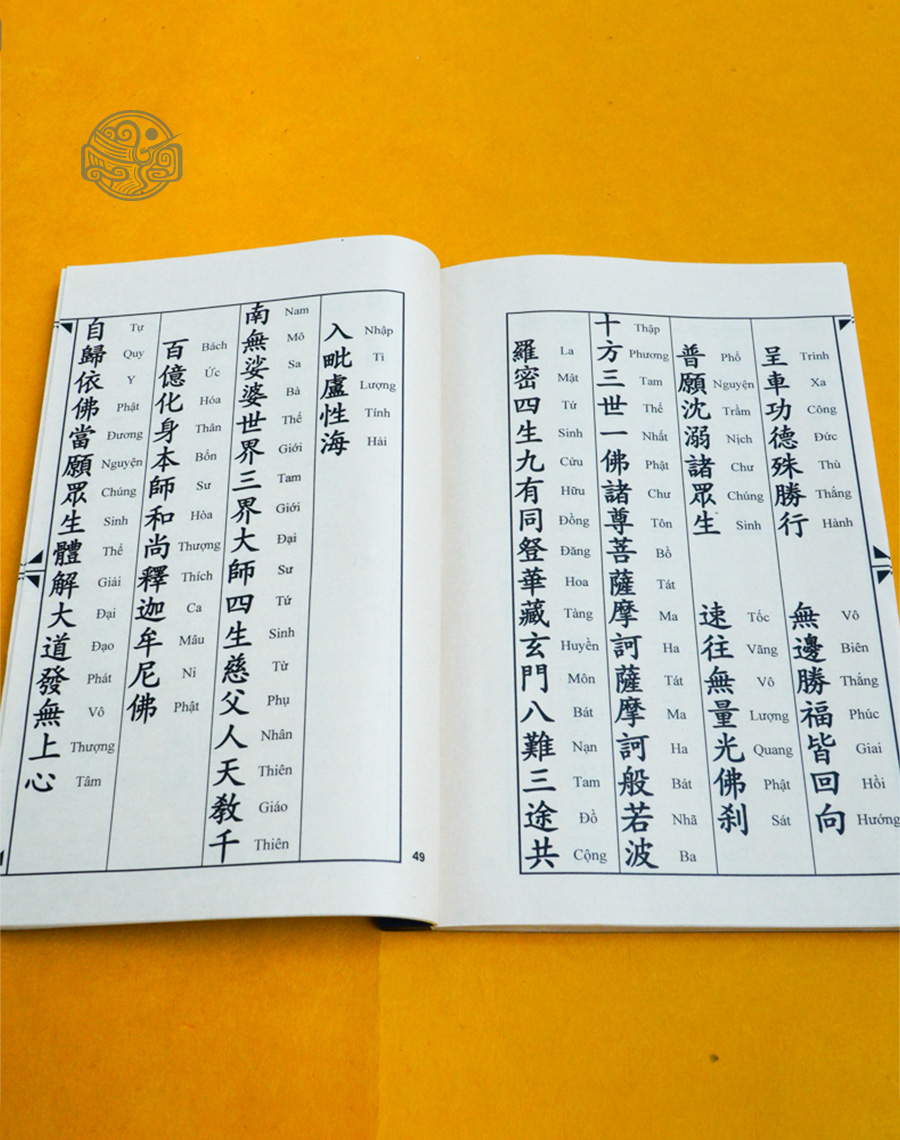 呈車功德殊勝行 無邊勝福皆回向
Trình Xa Công Đức Thù Thắng Hành Vô Biên Thắng Phúc Giai Hồi Hướng
普願沈溺諸眾生 速往無量光佛剎
Phổ Nguyện Trầm Nịch Chư Chúng Sinh Tốc Vãng Vô Lượng Quang Phật Sát
十方三世一佛諸尊菩薩摩訶薩摩訶般若波
Thập Phương Tam Thế Nhất Phật Chư Tôn Bồ Tát Ma Ha Tát Ma Ha Bát Nhã Ba
羅密四生九有同登華藏玄門八難三途共
La Mật Tứ Sinh Cửu Hữu Đồng Đăng Hoa Tàng Huyền Môn Bát Nạn Tam Đồ Cộng
入毗盧性海
Nhập Tì Lượng Tính Hải
南無娑婆世界三界大師四生慈父人天教千
Nam Mô Sa Bà Thế Giới Tam Giới Đại Sư Tứ Sinh Từ Phụ Nhân Thiên Giáo Thiên
百億化身本師和尚釋迦牟尼佛
Bách Ức Hóa Thân Bổn Sư Hòa Thượng Thích Ca Mâu Ni Phật
自歸依佛當願眾生體解大道發無上心
Tự Quy Y Phật Đương Nguyện Chúng Sinh Thể Giải Đại Đạo Phát Vô Thượng Tâm
49